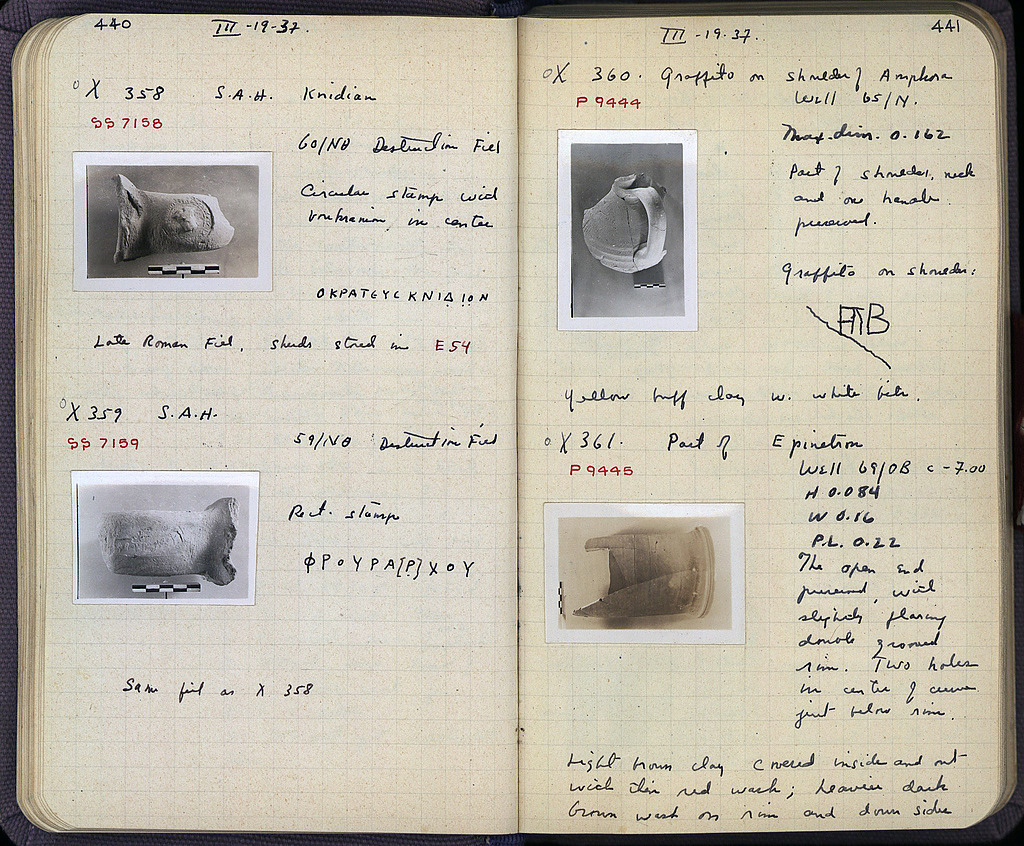 440
III -19-37.
X 358 S.A.H. Knidian
SS 7158
60/ΝΘ Destruction Fill
Circular stamp with
boukranion in center
ΟΚΡΑΤΕΥϹ ΚΝΙΔΙΟΝ
Late Roman Fill, sherds stored in E 54
X 359 S.A.H.
SS 7159
59/ΝΘ Destruction Fill
Rect. stamp
ΦΡΟΥΡΑ[Ρ]ΧΟΥ
Same fill as X 358
441
III -19-37.
X 360. Graffito on shoulder of Amphora
P 9444
Well 65/Ν.
Max. dim. 0.162
Part of shoulder, neck
and one handle
preserved.
Graffito on shoulder:
Yellow buff clay w. white bits.
X 361. Part of Epinetron
P 9445
Well 69/ΟΒ c -7.00
H 0.084
W 0.16
P.L. 0.22
The open end
preserved, with
slightly flaring
double grooved
rim. Two holes
in center of curve
just below rim.
Light brown clay covered inside and out
with thin red wash; heavier dark
brown wash on rim and down sides